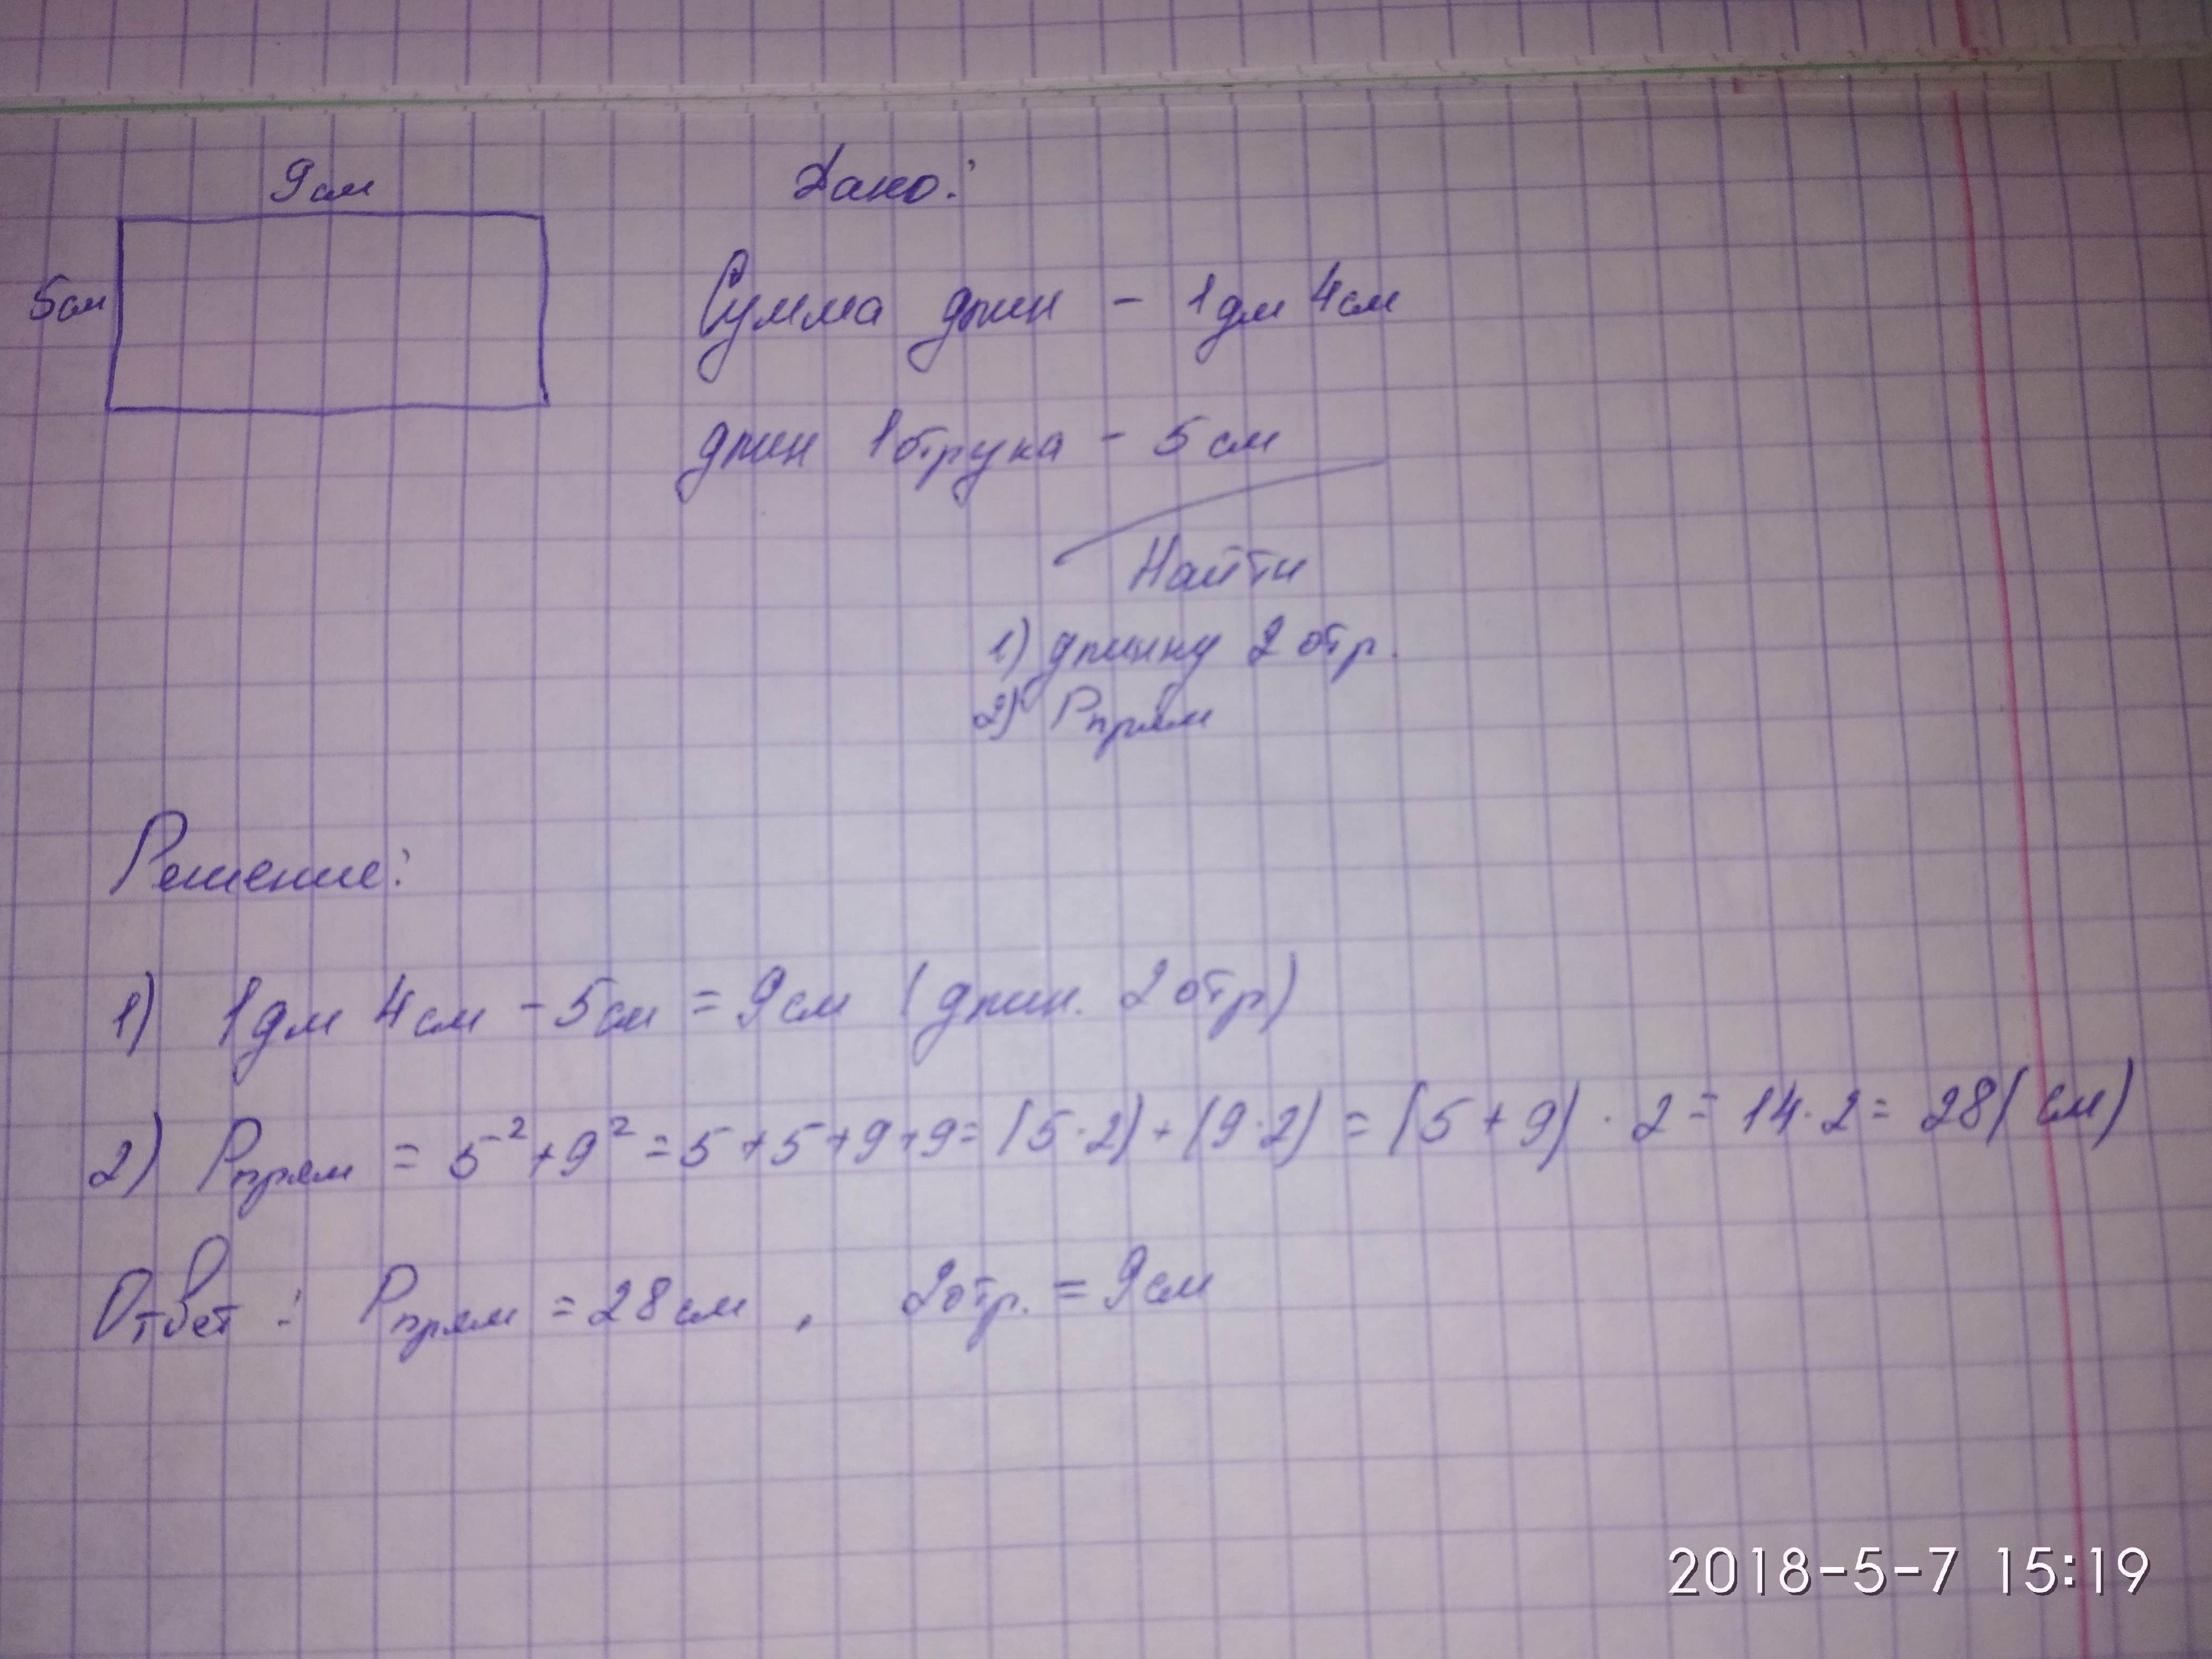 9см
Дано:
5см
Сумма длин - 1дм 4см
длин 1отрука - 5см
Найти
1) длинну 2 отр.
2) Рпрям
Решение:
1) 1дм 4см - 5см = 9см (длин. 2 отр)
2) Рпрям = 5²+9² = 5+5+9+9= (5·2)+(9·2) = (5+9)·2 = 14·2= 28(см)
Ответ: Рпрям = 28см, 2отр. = 9см
2018-5-7 15:19